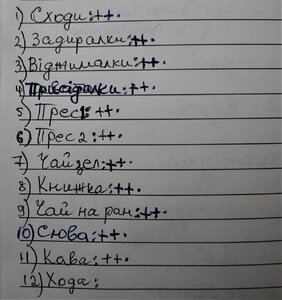 1) Сходи: ++.
2) Задиралки: ++.
3) Віджималки: ++.
4) Присідалки: ++.
5) Прес1: ++.
6) Прес 2: ++.
7) Чай зел: ++.
8) Книжка: ++.
9) Чай на ран: ++.
10) Слова: ++.
11) Кава: ++.
12) Хода: